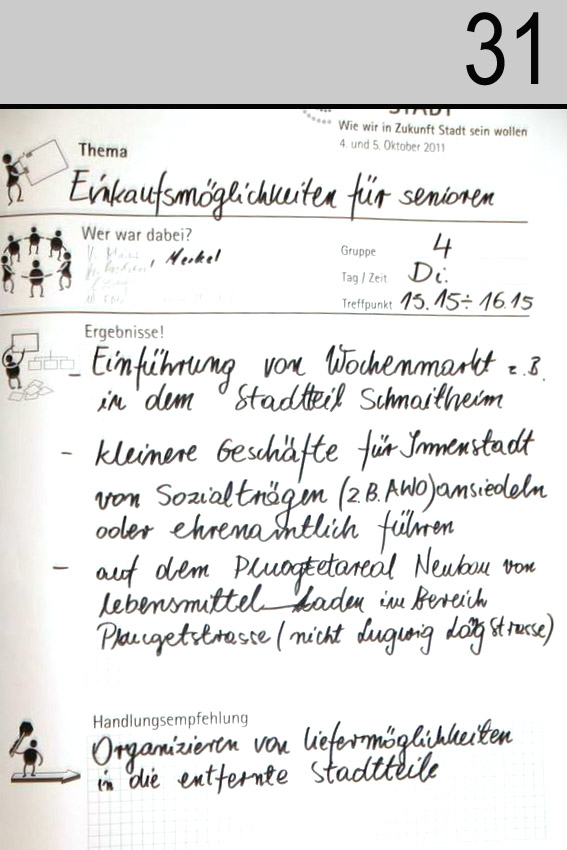 31
STADT
Wie wir in Zukunft Stadt sein wollen
4. und 5. Oktober 2011
Thema
Einkaufsmöglichkeiten für senioren
Wer war dabei?
, Merkel
Gruppe 4
Tag / Zeit Di.
Treffpunkt 15.15÷ 16.15
Ergebnisse!
- Einführung von Wochenmarkt z.B.
in dem Stadtteil Schnaitheim
- kleinere Geschäfte für Innenstadt
von Sozialträgen (z.B. AWO) ansiedeln
oder ehrenamtlich führen
- auf dem Neubau von
lebensmittel Laden im Bereich
(nicht Strasse)
Handlungsempfehlung
Organizieren von liefermöglichkeiten
in die entfernte Stadtteile